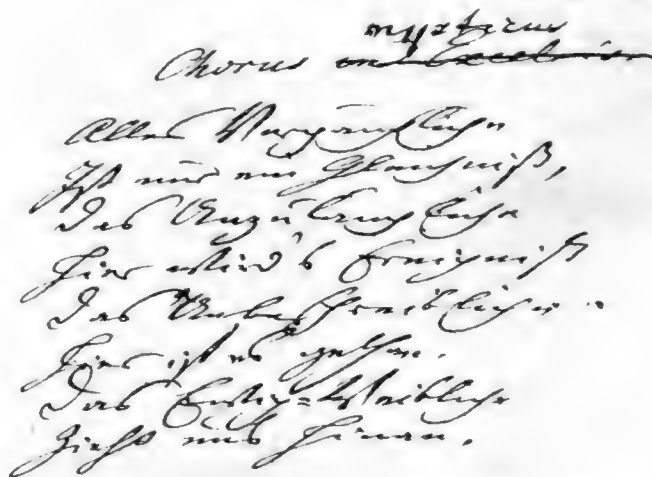 mysticus
Chorus in Excelsis
Alles Vergängliche
Ist nur ein Gleichniß,
Das Unzulängliche
Hier wird's Ereigniß
Das Unbeschreibliche
Hier ist es gethan.
Das Ewig=Weibliche
Zieht uns hinan.